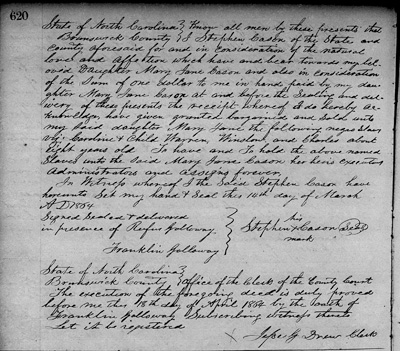 620
State of North Carolina} Know all men by these presents that
Brunswick County } I Stephen Cason of the State and
County aforesaid for and in consideration of the natural
love and affection which have and bear towards my bel
oved Daughter Mary Jane Cason and also in consideration
of the Sum of one dollar to me in hand paid by my dau
ghter Mary Jane Cason at and before the Sealing and del
ivery of these presents the receipt whereof I do hereby ac
knowledge, have given granted bargained and Sold unto
my Said daughter Mary Jane the following negro Slaves
Caroline & Child Warren, Winslow, and Charles about
Eight years old To have and To hold the above named
Slaves unto the Said Mary Jane Cason her heirs executors
Administrators and Assigns forever
In Witness whereof I the Said Stephen Cason have
hereunto Set my hand & Seal this 10th day of March
A D 1854
Signed Sealed & delivered
in presence of Rufus Galloway
Franklin Galloway
his
Stephen x Cason Seal
mark
State of North Carolina}
Brunswick County } Office of the Clerk of the County Court
The execution of the foregoing deed is duly proved
before me this 18th day of April 1854 by the oath of
Franklin Galloway Subscribing witness thereto
Let it be registered
Drew Clerk